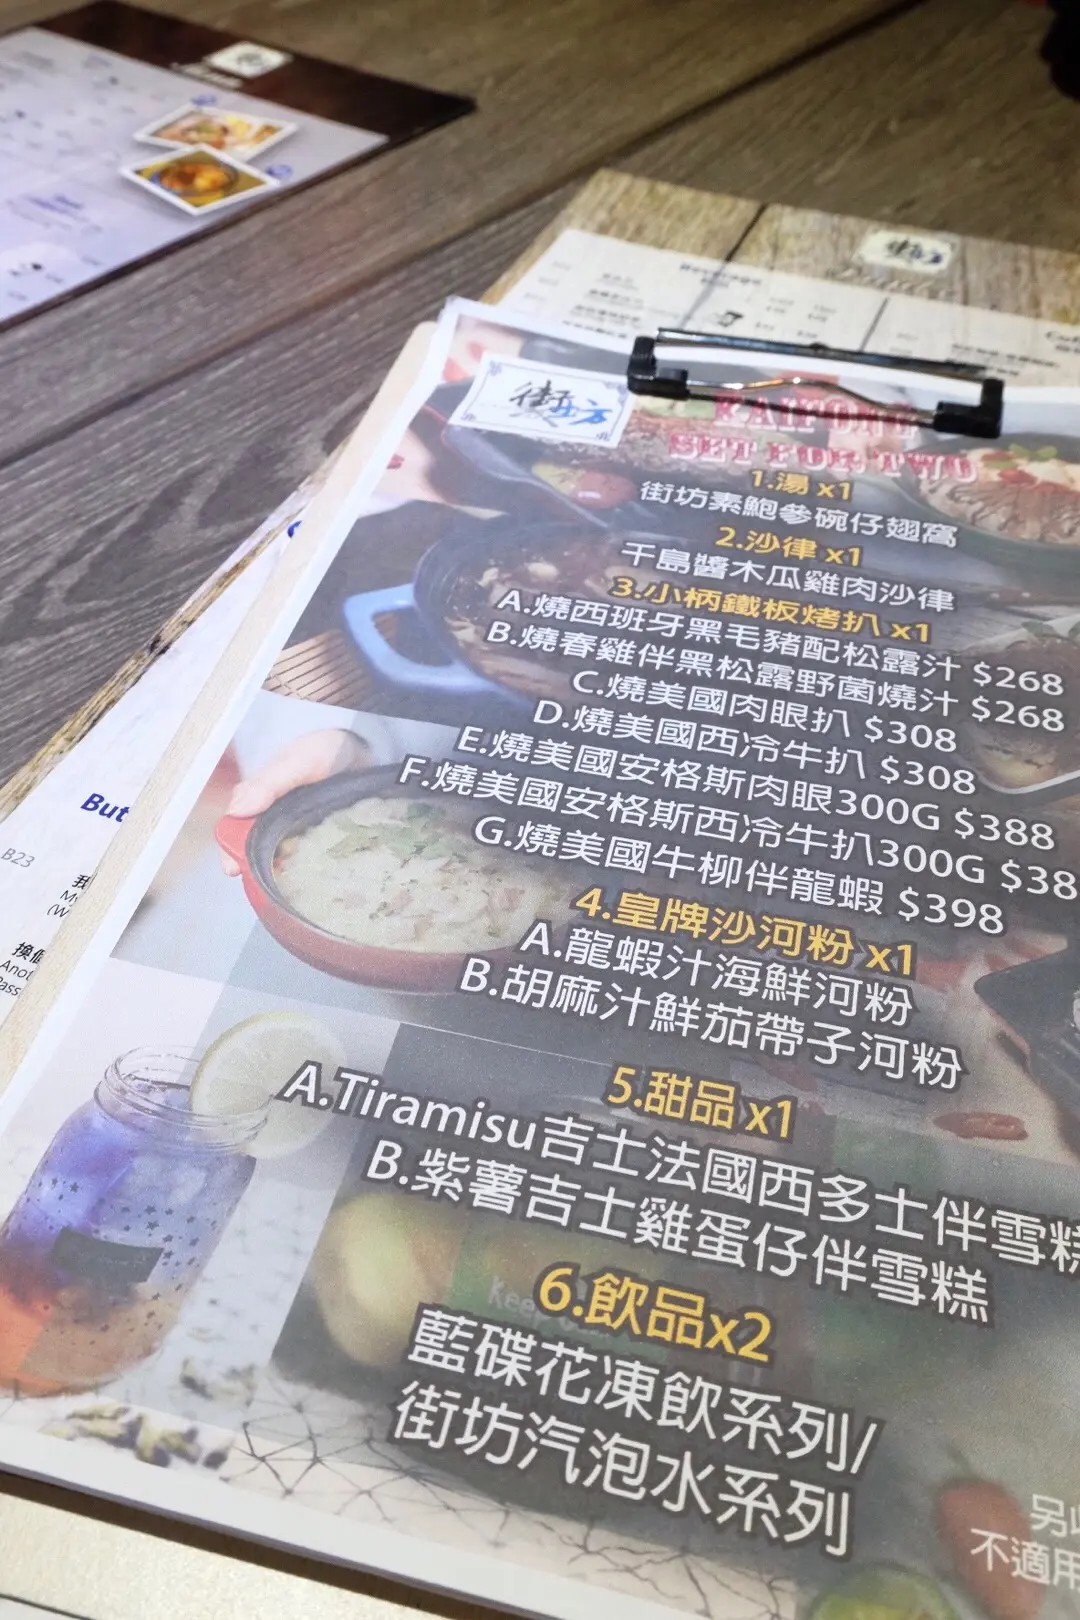 街坊
KAIFONG
SET FOR TWO
1.湯 x1
街坊素鮑參碗仔翅窩
2.沙律 x1
千島醬木瓜雞肉沙律
3.小柄鐵板烤扒 x1
A.燒西班牙黑毛豬配松露汁 $268
B.燒春雞伴黑松露野菌燒汁 $268
C.燒美國肉眼扒 $308
D.燒美國西冷牛扒 $308
E.燒美國安格斯肉眼300G $388
F.燒美國安格斯西冷牛扒300G $38
G.燒美國牛柳伴龍蝦 $398
4.皇牌沙河粉 x1
A.龍蝦汁海鮮河粉
B.胡麻汁鮮茄帶子河粉
5.甜品 x1
A.Tiramisu吉士法國西多士伴雪糕
B.紫薯吉士雞蛋仔伴雪糕
6.飲品x2
藍碟花凍飲系列/
街坊汽泡水系列
另收
不適用
But
B23
我
換個
Anot
Pass
街坊
Beverage